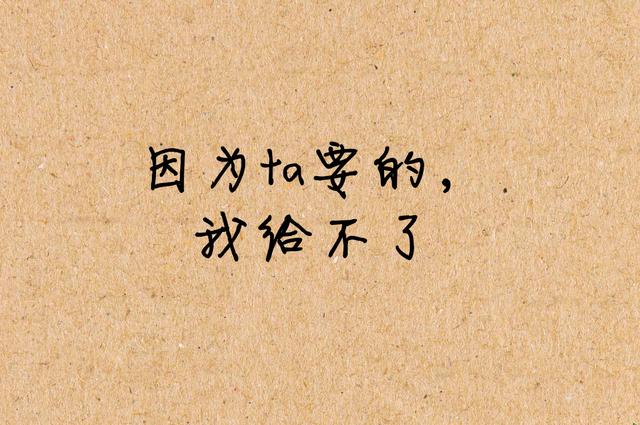 因为ta要的，
我给不了